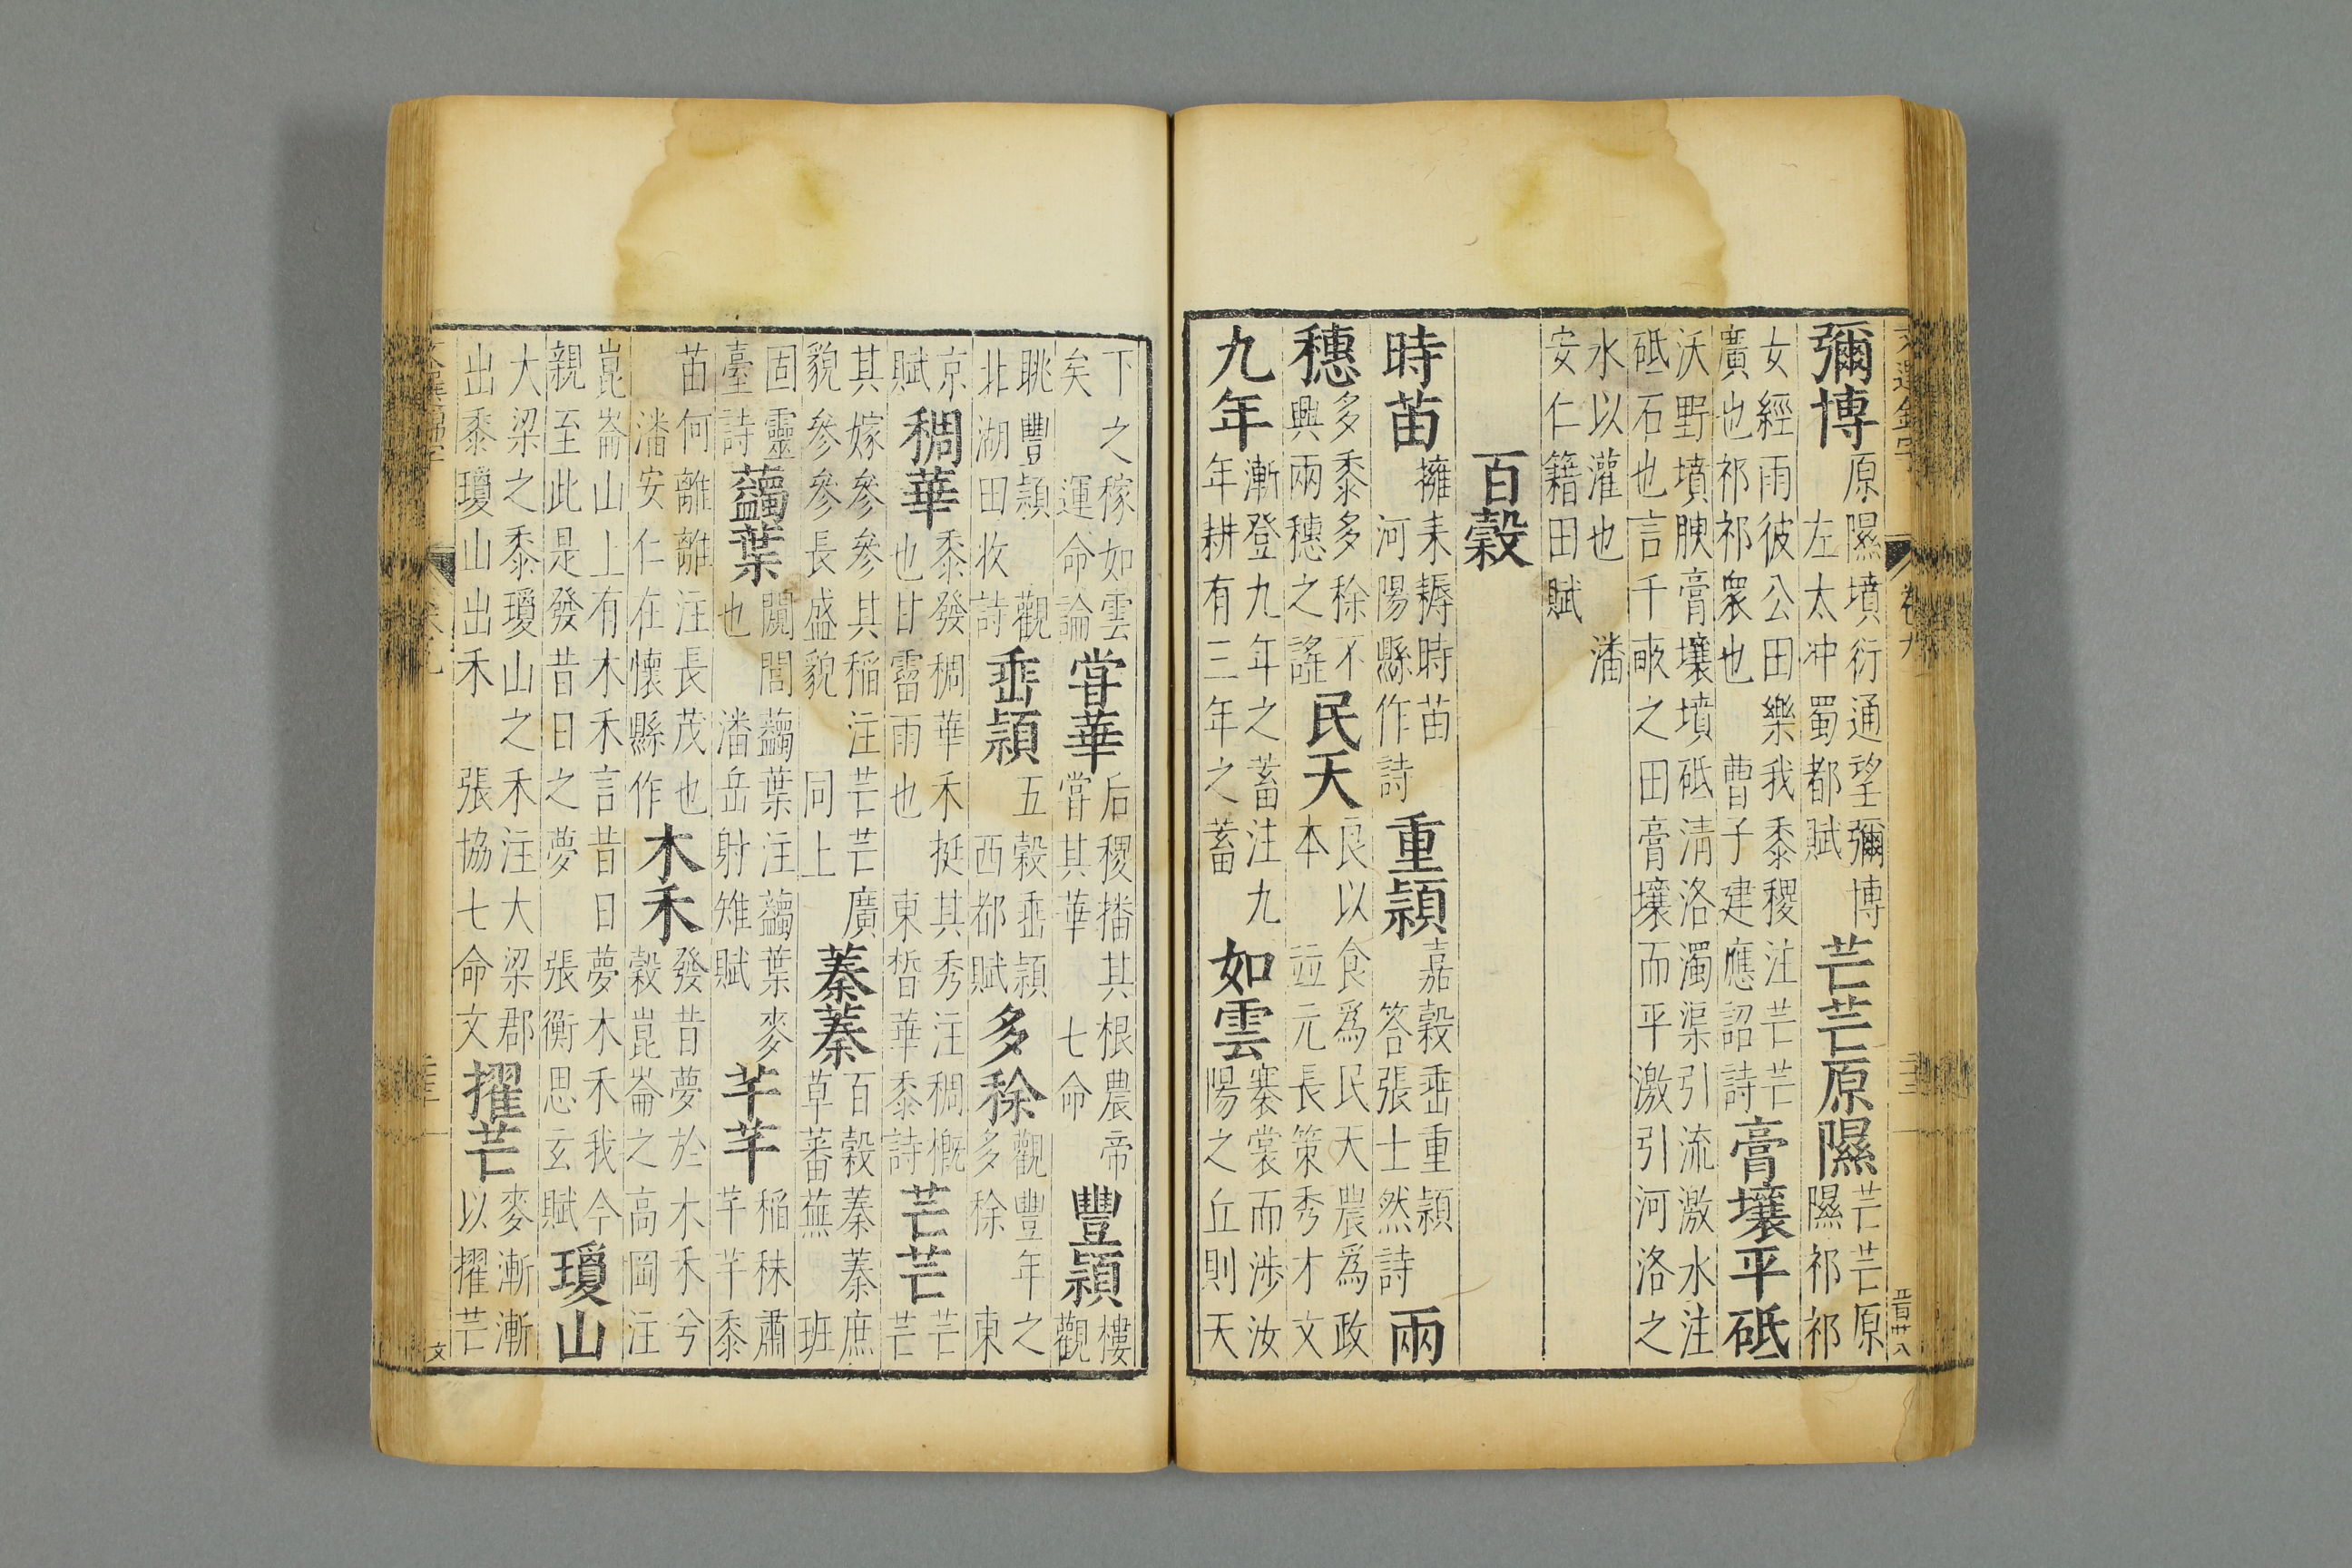 彌博原隰墳衍通望彌博左太冲蜀都賦芒芒原隰芒芒原隰祁祁
女經雨彼公田樂我黍稷注芒芒廣也祁祁衆也曹子建應詔詩膏壤平砥
沃野墳腴膏壤墳砥清洛濁渠引流激水注砥石也言千畝之田膏壤而平激引河洛之
水以灌也潘安仁籍田賦
百穀
時苗擁耒耨時苗河陽縣作詩重穎嘉穀垂重穎答張士然詩兩
穗多黍多稌不興兩穗之謠民天良以食爲民天農爲政本竝元長策秀才文
九年漸登九年之蓄注九年耕有三年之蓄如雲褰裳而涉汝陽之丘則天
下之稼如雲矣運命論甞華后稷播其根農帝甞其華七命豐穎樓觀
眺豐穎觀北湖田收詩垂穎五穀垂穎西都賦多稌觀豐年之多稌東
京賦稠華黍發稠華禾挺其秀注稠概也甘霤雨也東晳華黍詩芒芒芒芒
其嫁參參其稲注芒芒廣貌參參長盛貌同上蓁蓁百穀蓁蓁庶草蕃蕪班
固靈臺詩葉誾葉注葉麥也潘岳射雉賦芊芊稲秫肅芊芊黍
苗何離離注長茂也潘安仁在懷縣作木禾發昔夢於木禾兮穀崑崙之高岡注
崑崙山上有木禾言昔日夢木禾我今親至此是發昔日之夢張衡思玄賦瓊山
大梁之黍瓊山之禾注大梁郡出黍瓊山出禾張協七命文擢芒麥漸漸以擢芒
卷九
文